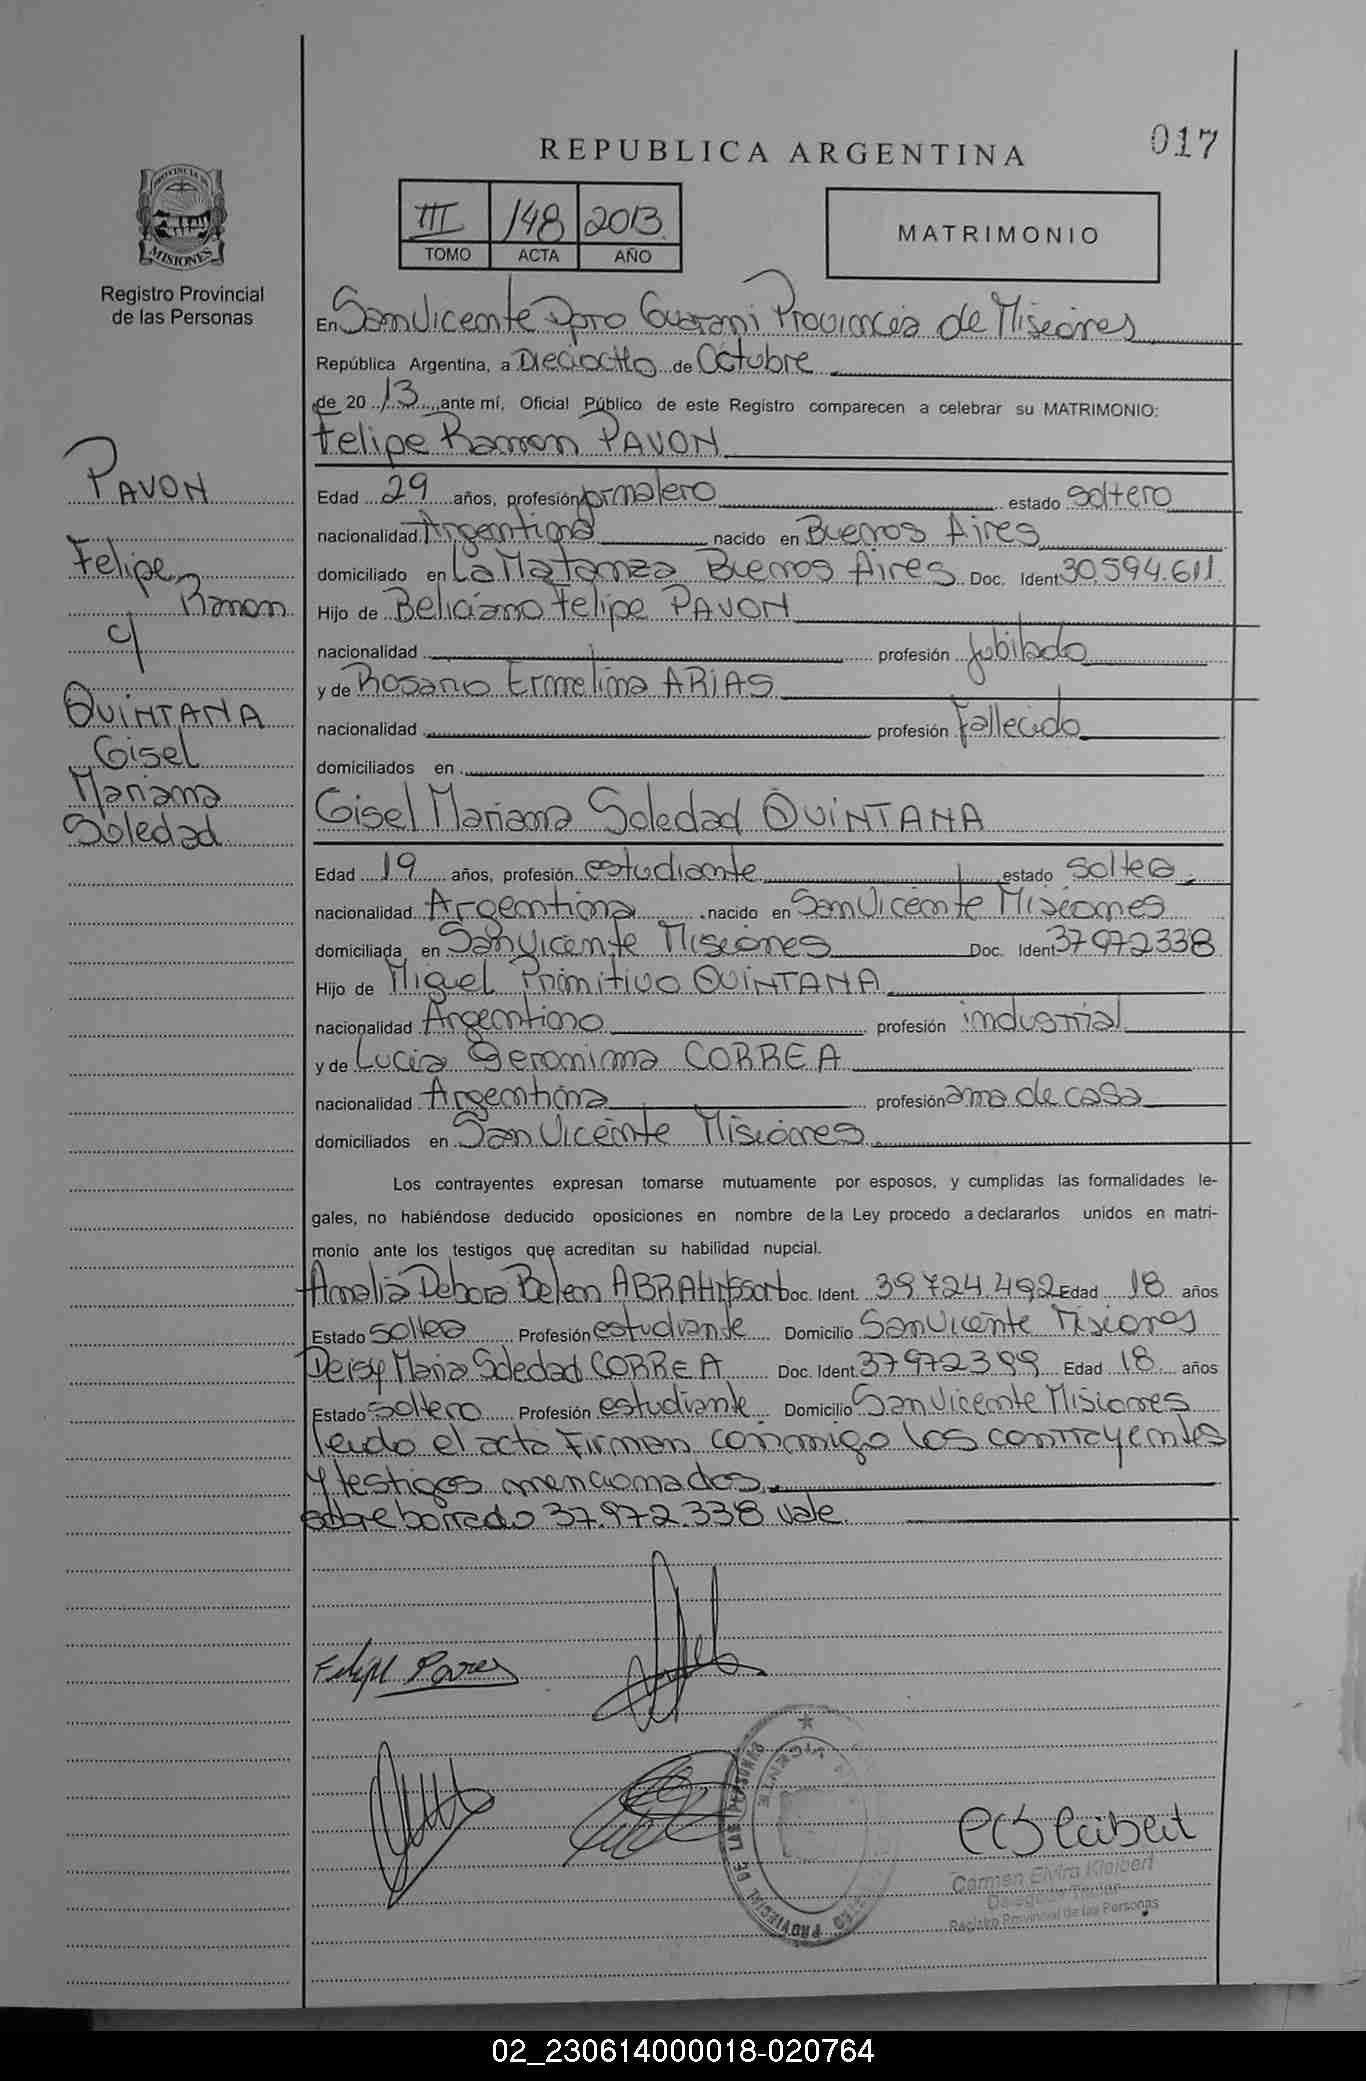 017
REPUBLICA ARGENTINA
PROVINCIA DE
MISIONES
Registro Provincial
de las Personas
III 148 2013
TOMO ACTA AÑO
MATRIMONIO
En San Vicente Dpto Guarani Provincia de Misiones
República Argentina, a Dieciocho de Octubre
de 20 13 ante mí, Oficial Público de este Registro comparecen a celebrar su MATRIMONIO:
Felipe Ramon PAVON
PAVON
Felipe
Ramon
c/
QUINTANA
Gisel
Mariana
Soledad
Edad 29 años, profesión jornalero estado soltero
nacionalidad Argentina nacido en Buenos Aires
domiciliado en La Matanza Buenos Aires Doc. Ident 30.594.611
Hijo de Feliciano Felipe PAVON
nacionalidad profesión jubilado
y de Rosario Ermelina ARIAS
nacionalidad profesión fallecido
domiciliados en
Gisel Mariana Soledad QUINTANA
Edad 19 años, profesión estudiante estado soltera
nacionalidad Argentina nacido en San Vicente Misiones
domiciliada en San Vicente Misiones Doc. Ident 37972338
Hijo de Miguel Primitivo QUINTANA
nacionalidad Argentino profesión industrial
y de Lucia Geronima CORREA
nacionalidad Argentina profesión ama de casa
domiciliados en San Vicente Misiones
Los contrayentes expresan tomarse mutuamente por esposos, y cumplidas las formalidades le-
gales, no habiéndose deducido oposiciones en nombre de la Ley procedo a declararlos unidos en matri-
monio ante los testigos que acreditan su habilidad nupcial.
Amalia Debora Belen ABRAHNSSON Doc. Ident. 39.724.492 Edad 18 años
Estado soltera Profesión estudiante Domicilio San Vicente Misiones
Deisy Maria Soledad CORREA Doc. Ident. 37972399 Edad 18 años
Estado soltero Profesión estudiante Domicilio San Vicente Misiones
leido el acta Firman conmigo los contrayentes
y testigos mencionados.
sobre borrado 37.972.338 vale.
Carmen Elvira Kleibert
Delegada Titular
Registro Provincial de las Personas
PROVINCIAL DE LAS PERSONAS
02_230614000018-020764